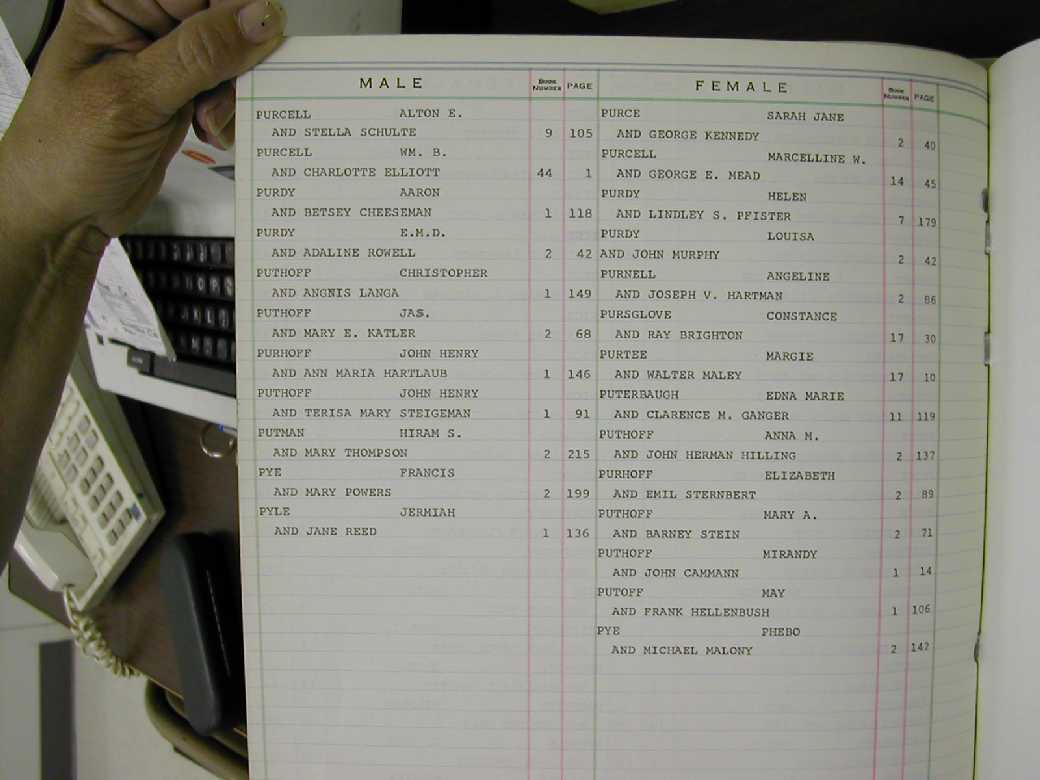 MALE BOOK NUMBER PAGE
PURCELL ALTON E.
AND STELLA SCHULTE 9 105
PURCELL WM. B.
AND CHARLOTTE ELLIOTT 44 1
PURDY AARON
AND BETSEY CHEESEMAN 1 118
PURDY E.M.D.
AND ADALINE ROWELL 2 42
PUTHOFF CHRISTOPHER
AND ANGNIS LANGA 1 149
PUTHOFF JAS.
AND MARY E. KATLER 2 68
PURHOFF JOHN HENRY
AND ANN MARIA HARTLAUB 1 146
PUTHOFF JOHN HENRY
AND TERISA MARY STEIGEMAN 1 91
PUTMAN HIRAM S.
AND MARY THOMPSON 2 215
PYE FRANCIS
AND MARY POWERS 2 199
PYLE JERMIAH
AND JANE REED 1 136
FEMALE BOOK NUMBER PAGE
PURCE SARAH JANE
AND GEORGE KENNEDY 2 40
PURCELL MARCELLINE W.
AND GEORGE E. MEAD 14 45
PURDY HELEN
AND LINDLEY S. PFISTER 7 179
PURDY LOUISA
AND JOHN MURPHY 2 42
PURNELL ANGELINE
AND JOSEPH V. HARTMAN 2 86
PURSGLOVE CONSTANCE
AND RAY BRIGHTON 17 30
PURTEE MARGIE
AND WALTER MALEY 17 10
PUTERBAUGH EDNA MARIE
AND CLARENCE M. GANGER 11 119
PUTHOFF ANNA M.
AND JOHN HERMAN HILLING 2 137
PURHOFF ELIZABETH
AND EMIL STERNBERT 2 89
PUTHOFF MARY A.
AND BARNEY STEIN 2 71
PUTHOFF MIRANDY
AND JOHN CAMMANN 1 14
PUTOFF MAY
AND FRANK HELLENBUSH 1 106
PYE PHEBO
AND MICHAEL MALONY 2 142